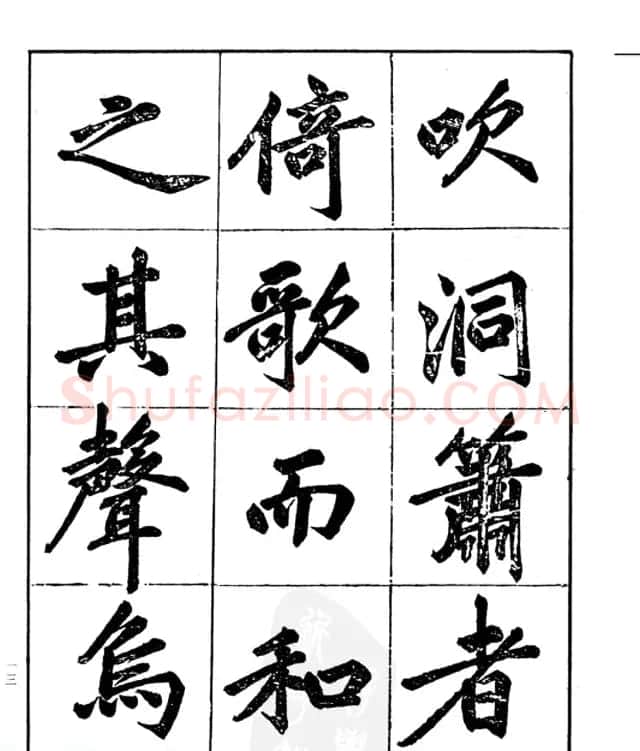 吹洞簫者
倚歌而和
之其聲烏
Shufaziliao.COM